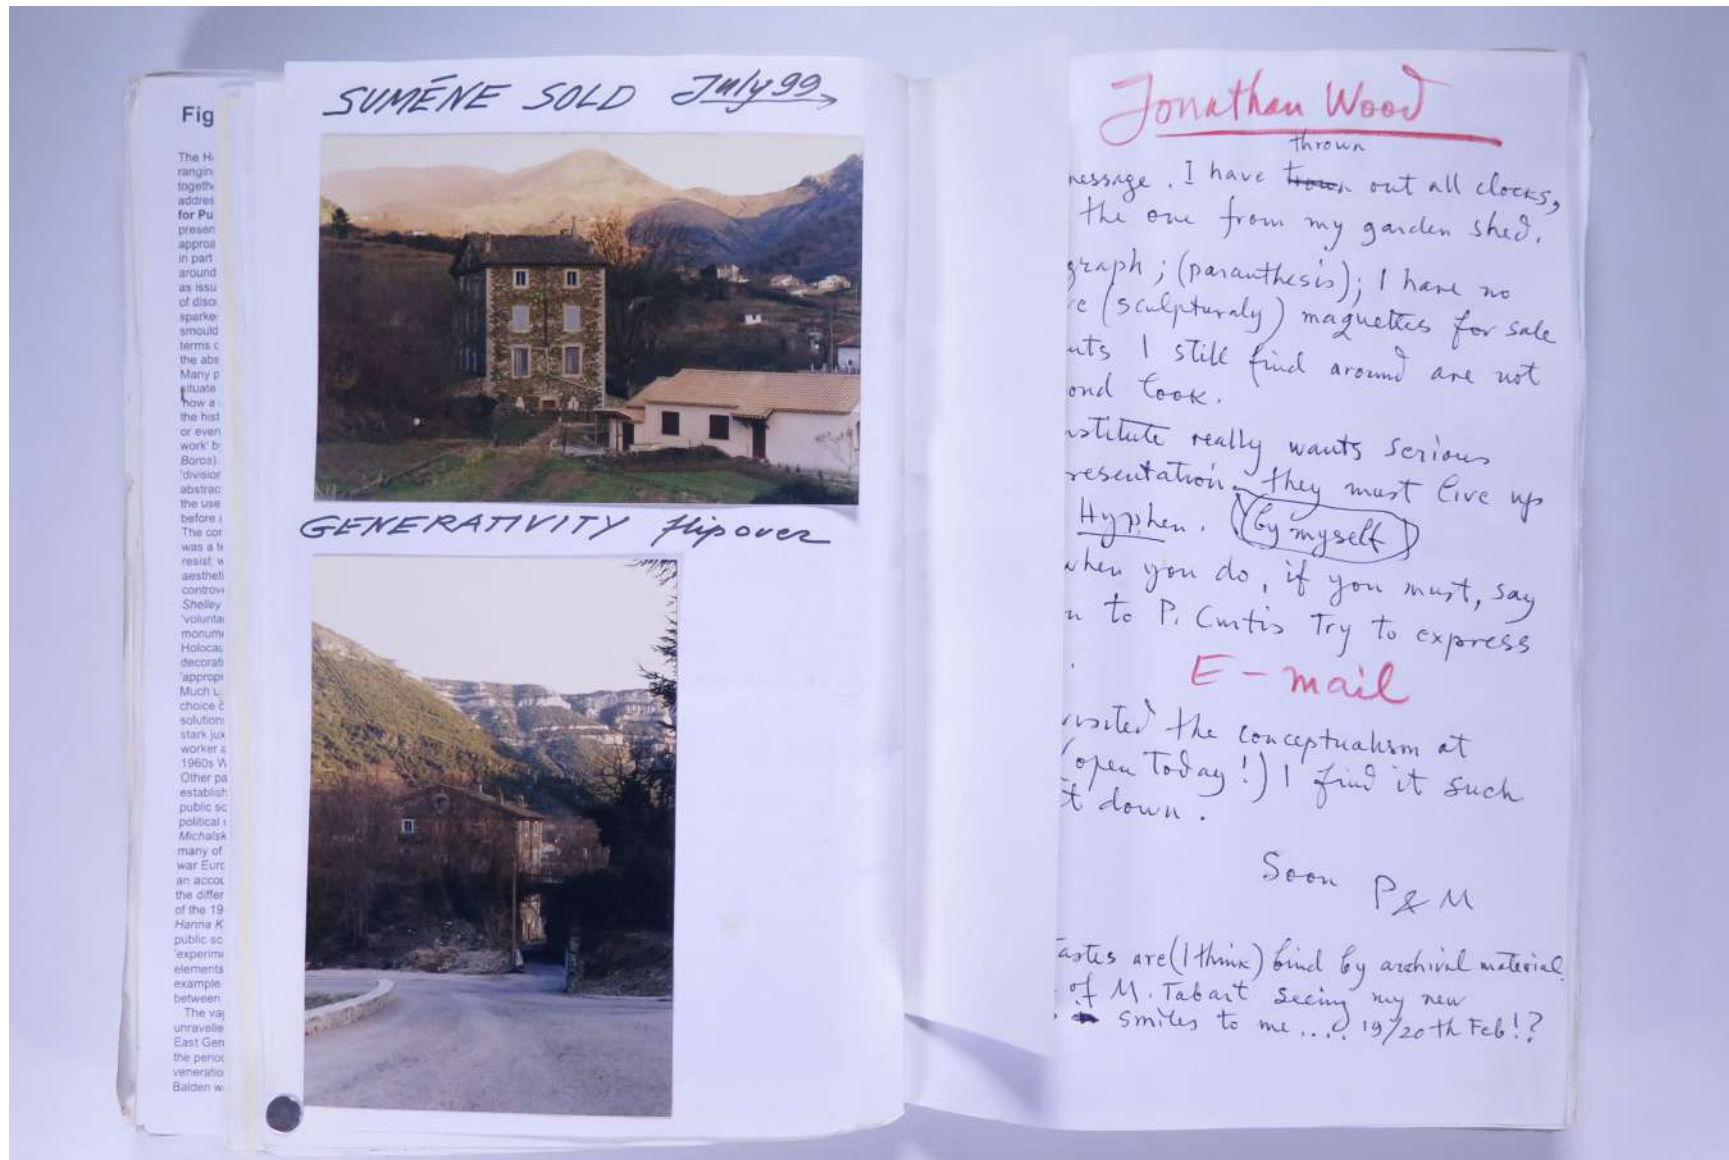 Fig
The H
ranging
togeth
addres
for Pu
presen
approa
in part
around
as issu
of disc
sparke
smould
terms c
the abs
Many p
situate
how a
the hist
or even
work' b
Boros)
'division
abstrac
the use
before
The cor
was a
resist: w
aestheti
controv
Shelley
'volunta
monume
Holocau
decorati
'appropr
Much
choice
solution
stark jux
worker a
1960s W
Other pa
establish
public sc
political
Michalsk
many of
war Euro
an accou
the differ
of the 19
Hanna K
public sc
'experime
elements
example
between
The va
unravelle
East Gen
the period
veneratio
Balden w
SUMÉNE SOLD July 99
GENERATIVITY flip over
Jonathan Wood
thrown
message. I have out all clocks,
the one from my garden shed.
graph; (paranthesis); I have no
(sculpturaly) maquettes for sale
I still find around are not
ond look.
nstitute really wants serious
resentation. they must live up
Hyphen. (by myself)
when you do, if you must, say
to P. Curtis Try to express
E-mail
visited the conceptualism at
(open today!) I find it such
t down.
Soon P & M
tastes are (I think) bind by archival material
of M. Tabart seeing my new
smiles to me.... 19/20th Feb!?